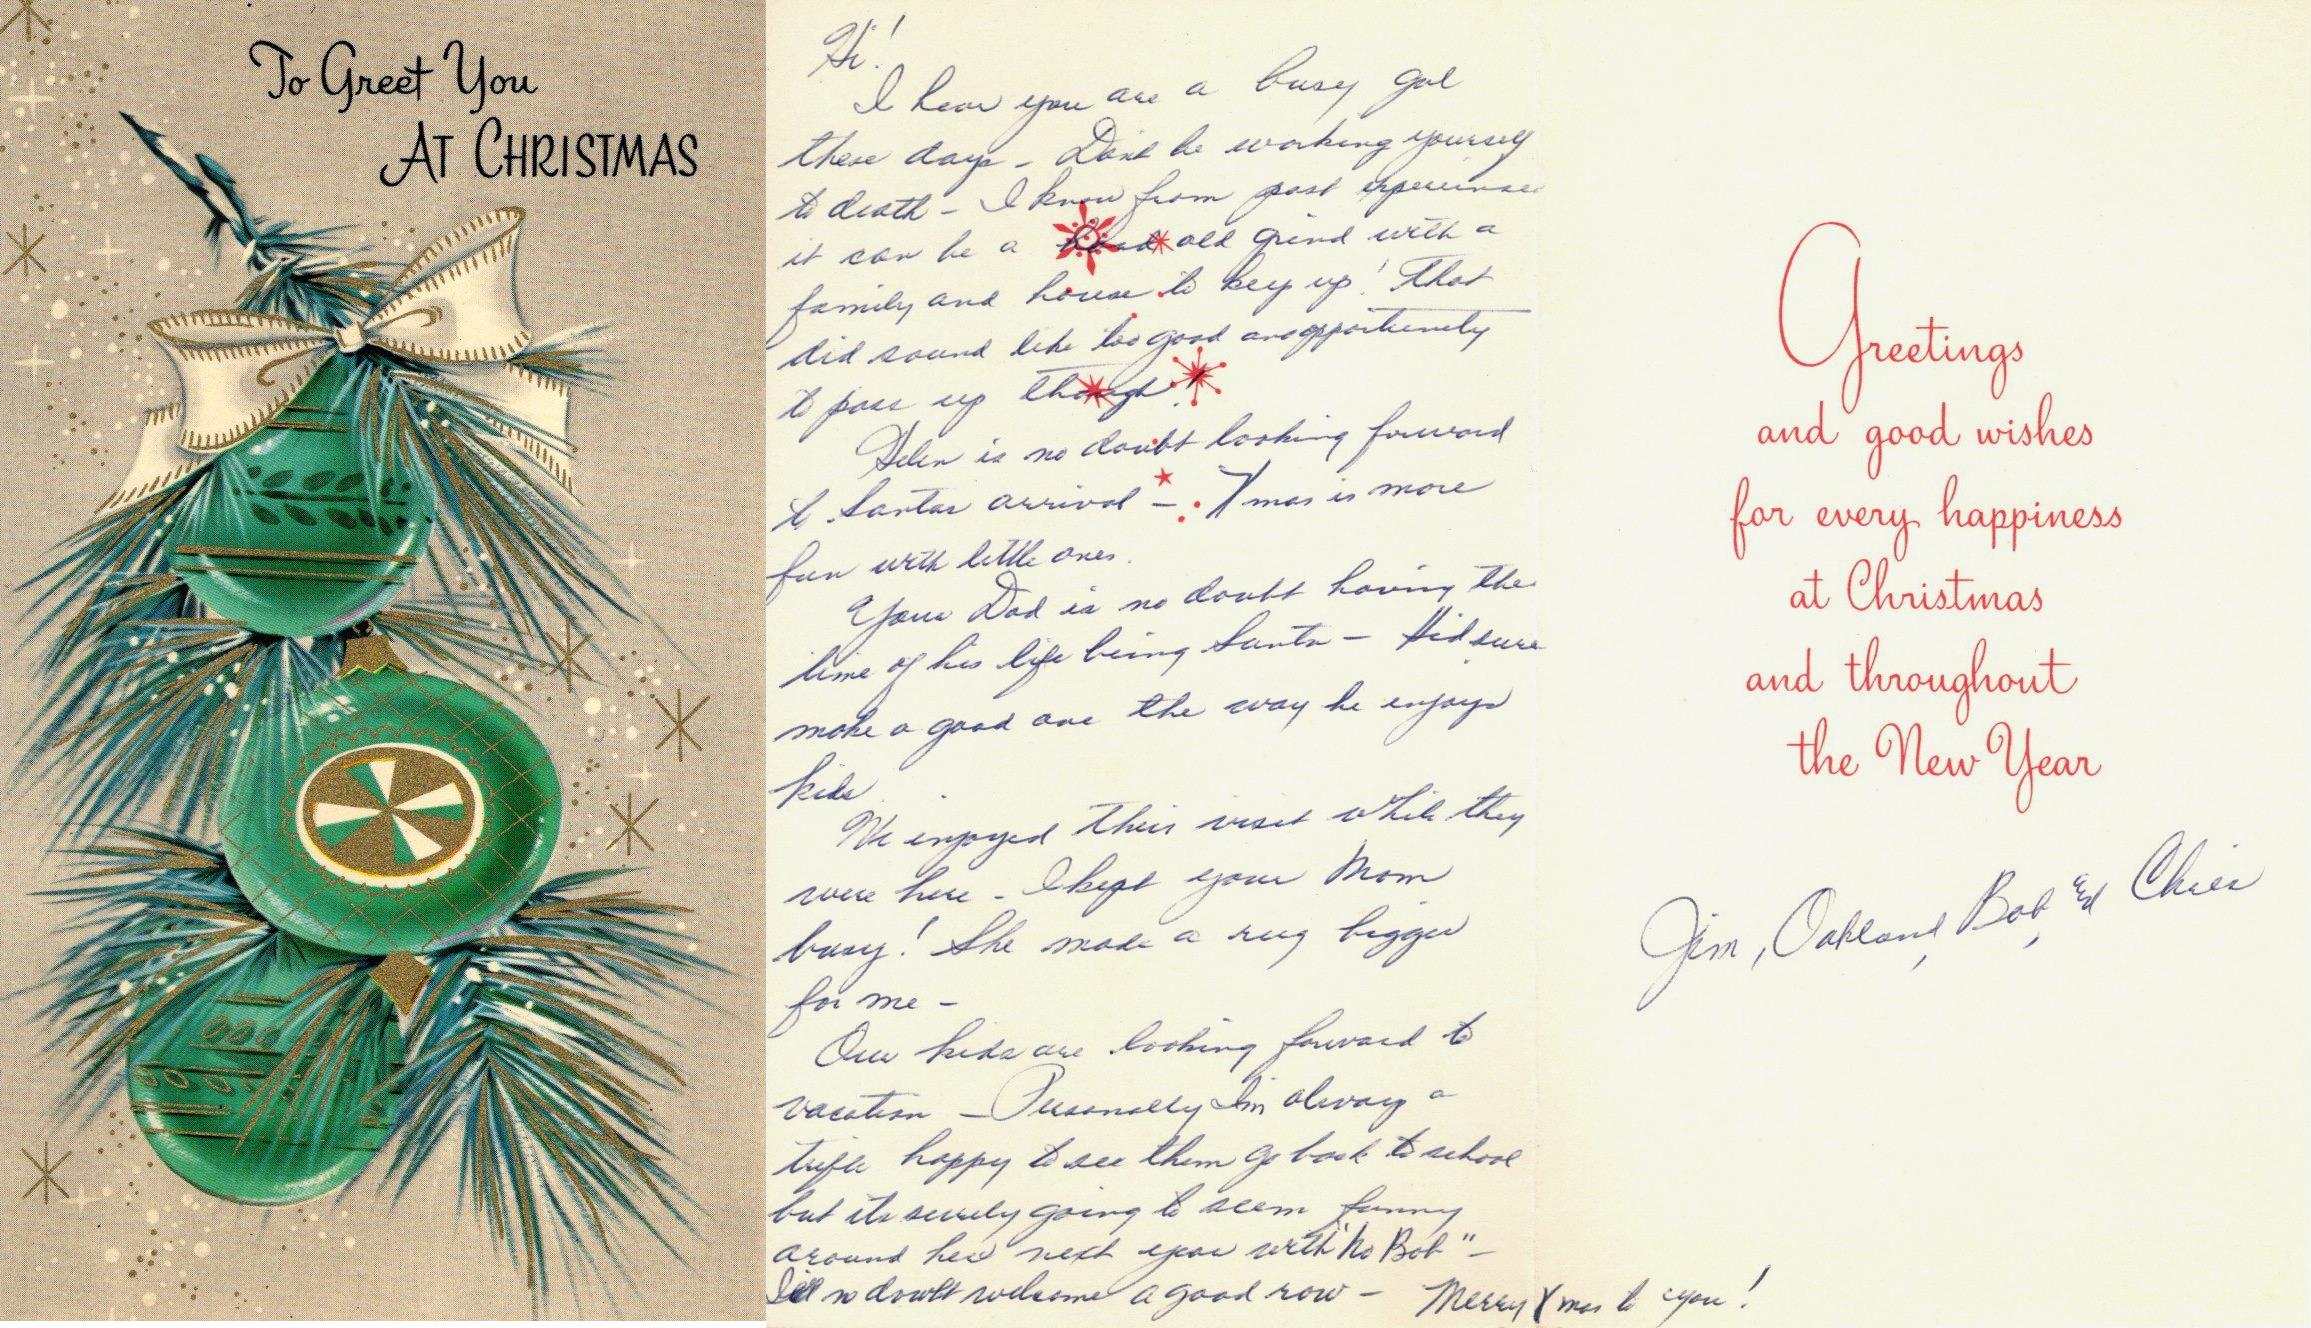 To Greet You
At Christmas
Hi!
I hear you are a busy gal
these days - Dont be working yourself
to death - I know from past experience
it can be a hard old grind with a
family and house to keep up! That
did sound like too good an opportunity
to pass up though!
Helen is no doubt looking forward
to Santas arrival - Xmas is more
fun with little ones.
Your Dad is no doubt having the
time of his life being Santa - Hid sure
make a good one the way he enjoys
kids
We enjoyed their visit while they
were here - I kept your Mom
busy! She made a rug bigger
for me -
Our kids are looking forward to
vacation - Personally Im always a
trifle happy to see them go back to school
but its surely going to seem funny
around here next year with "No Bob" -
I'll no doubt welcome a good row - Merry Xmas to you!
Greetings
and good wishes
for every happiness
at Christmas
and throughout
the New Year
Jim, Oakland, Bob, and Chris